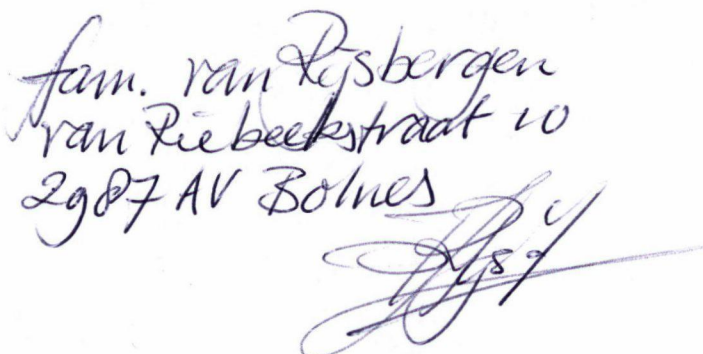 fam. van Rijsbergen
van Riebeekstraat 10
2987 AV Bolnes